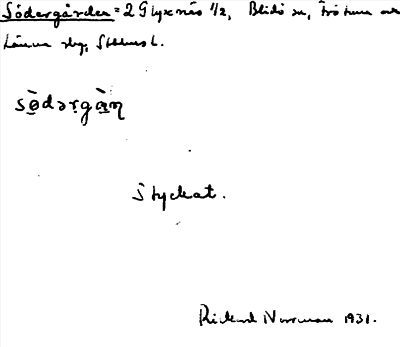 Södergården = 2 Glyxnäs 1/2, Blidö sn, Frötuna och
Länna skg, Sthlms l.
sö̀dərgàɳ
Styckat.
Rickard Norrman 1931.